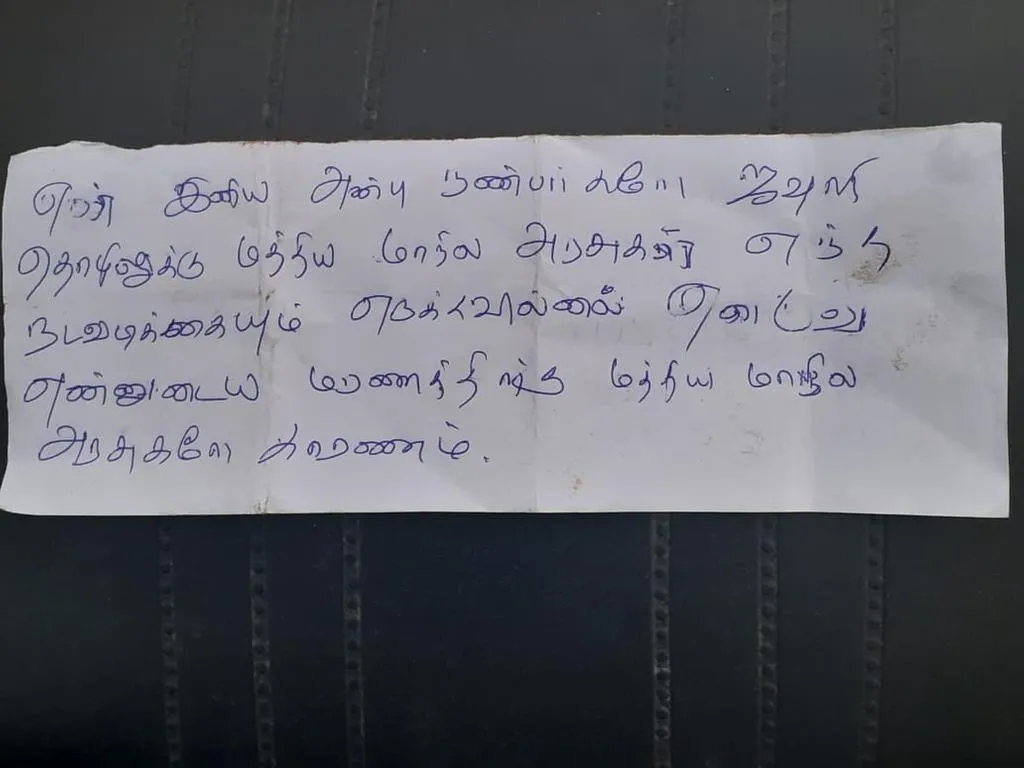 என் இனிய அன்பு நண்பர்களே ஜவுளி
தொழிலுக்கு மத்திய மாநில அரசுகள் எந்த
நடவடிக்கையும் எடுக்கவில்லை
என்னுடைய மரணத்திற்கு மத்திய மாநில
அரசுகளே காரணம்.